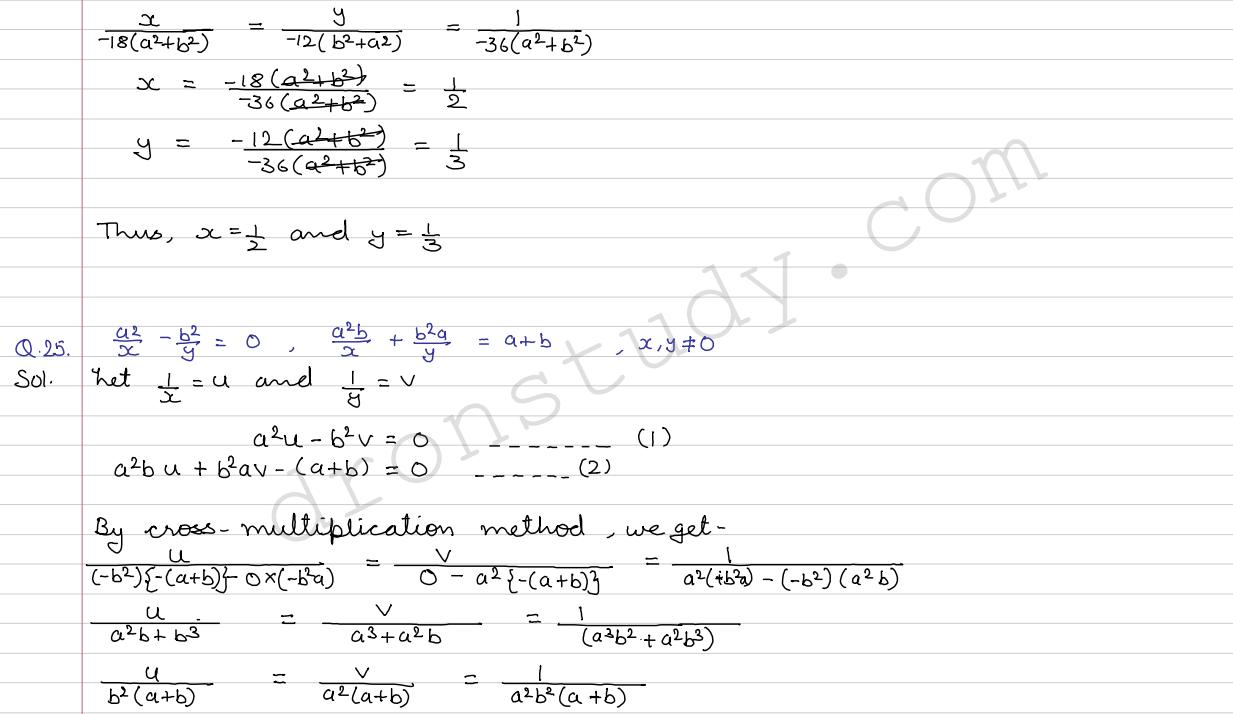 x/-18(a²+b²) = y/-12(b²+a²) = 1/-36(a²+b²)
x = -18(a²+b²)/-36(a²+b²) = 1/2
y = -12(a²+b²)/-36(a²+b²) = 1/3
Thus, x = 1/2 and y = 1/3
Q.25. a²/x - b²/y = 0 , a²b/x + b²a/y = a+b , x,y ≠ 0
Sol. Let 1/x = u and 1/y = v
a²u - b²v = 0 _ _ _ _ _ _ _ _ (1)
a²b u + b²av - (a+b) = 0 _ _ _ _ _ _ (2)
By cross-multiplication method, we get-
u/(-b²){-(a+b)} - 0×(-b²a) = v/0 - a²{-(a+b)} = 1/a²(+b²a) - (-b²)(a²b)
u/a²b + b³ = v/a³+a²b = 1/(a³b² + a²b³)
u/b²(a+b) = v/a²(a+b) = 1/a²b²(a+b)
dronstudy.com